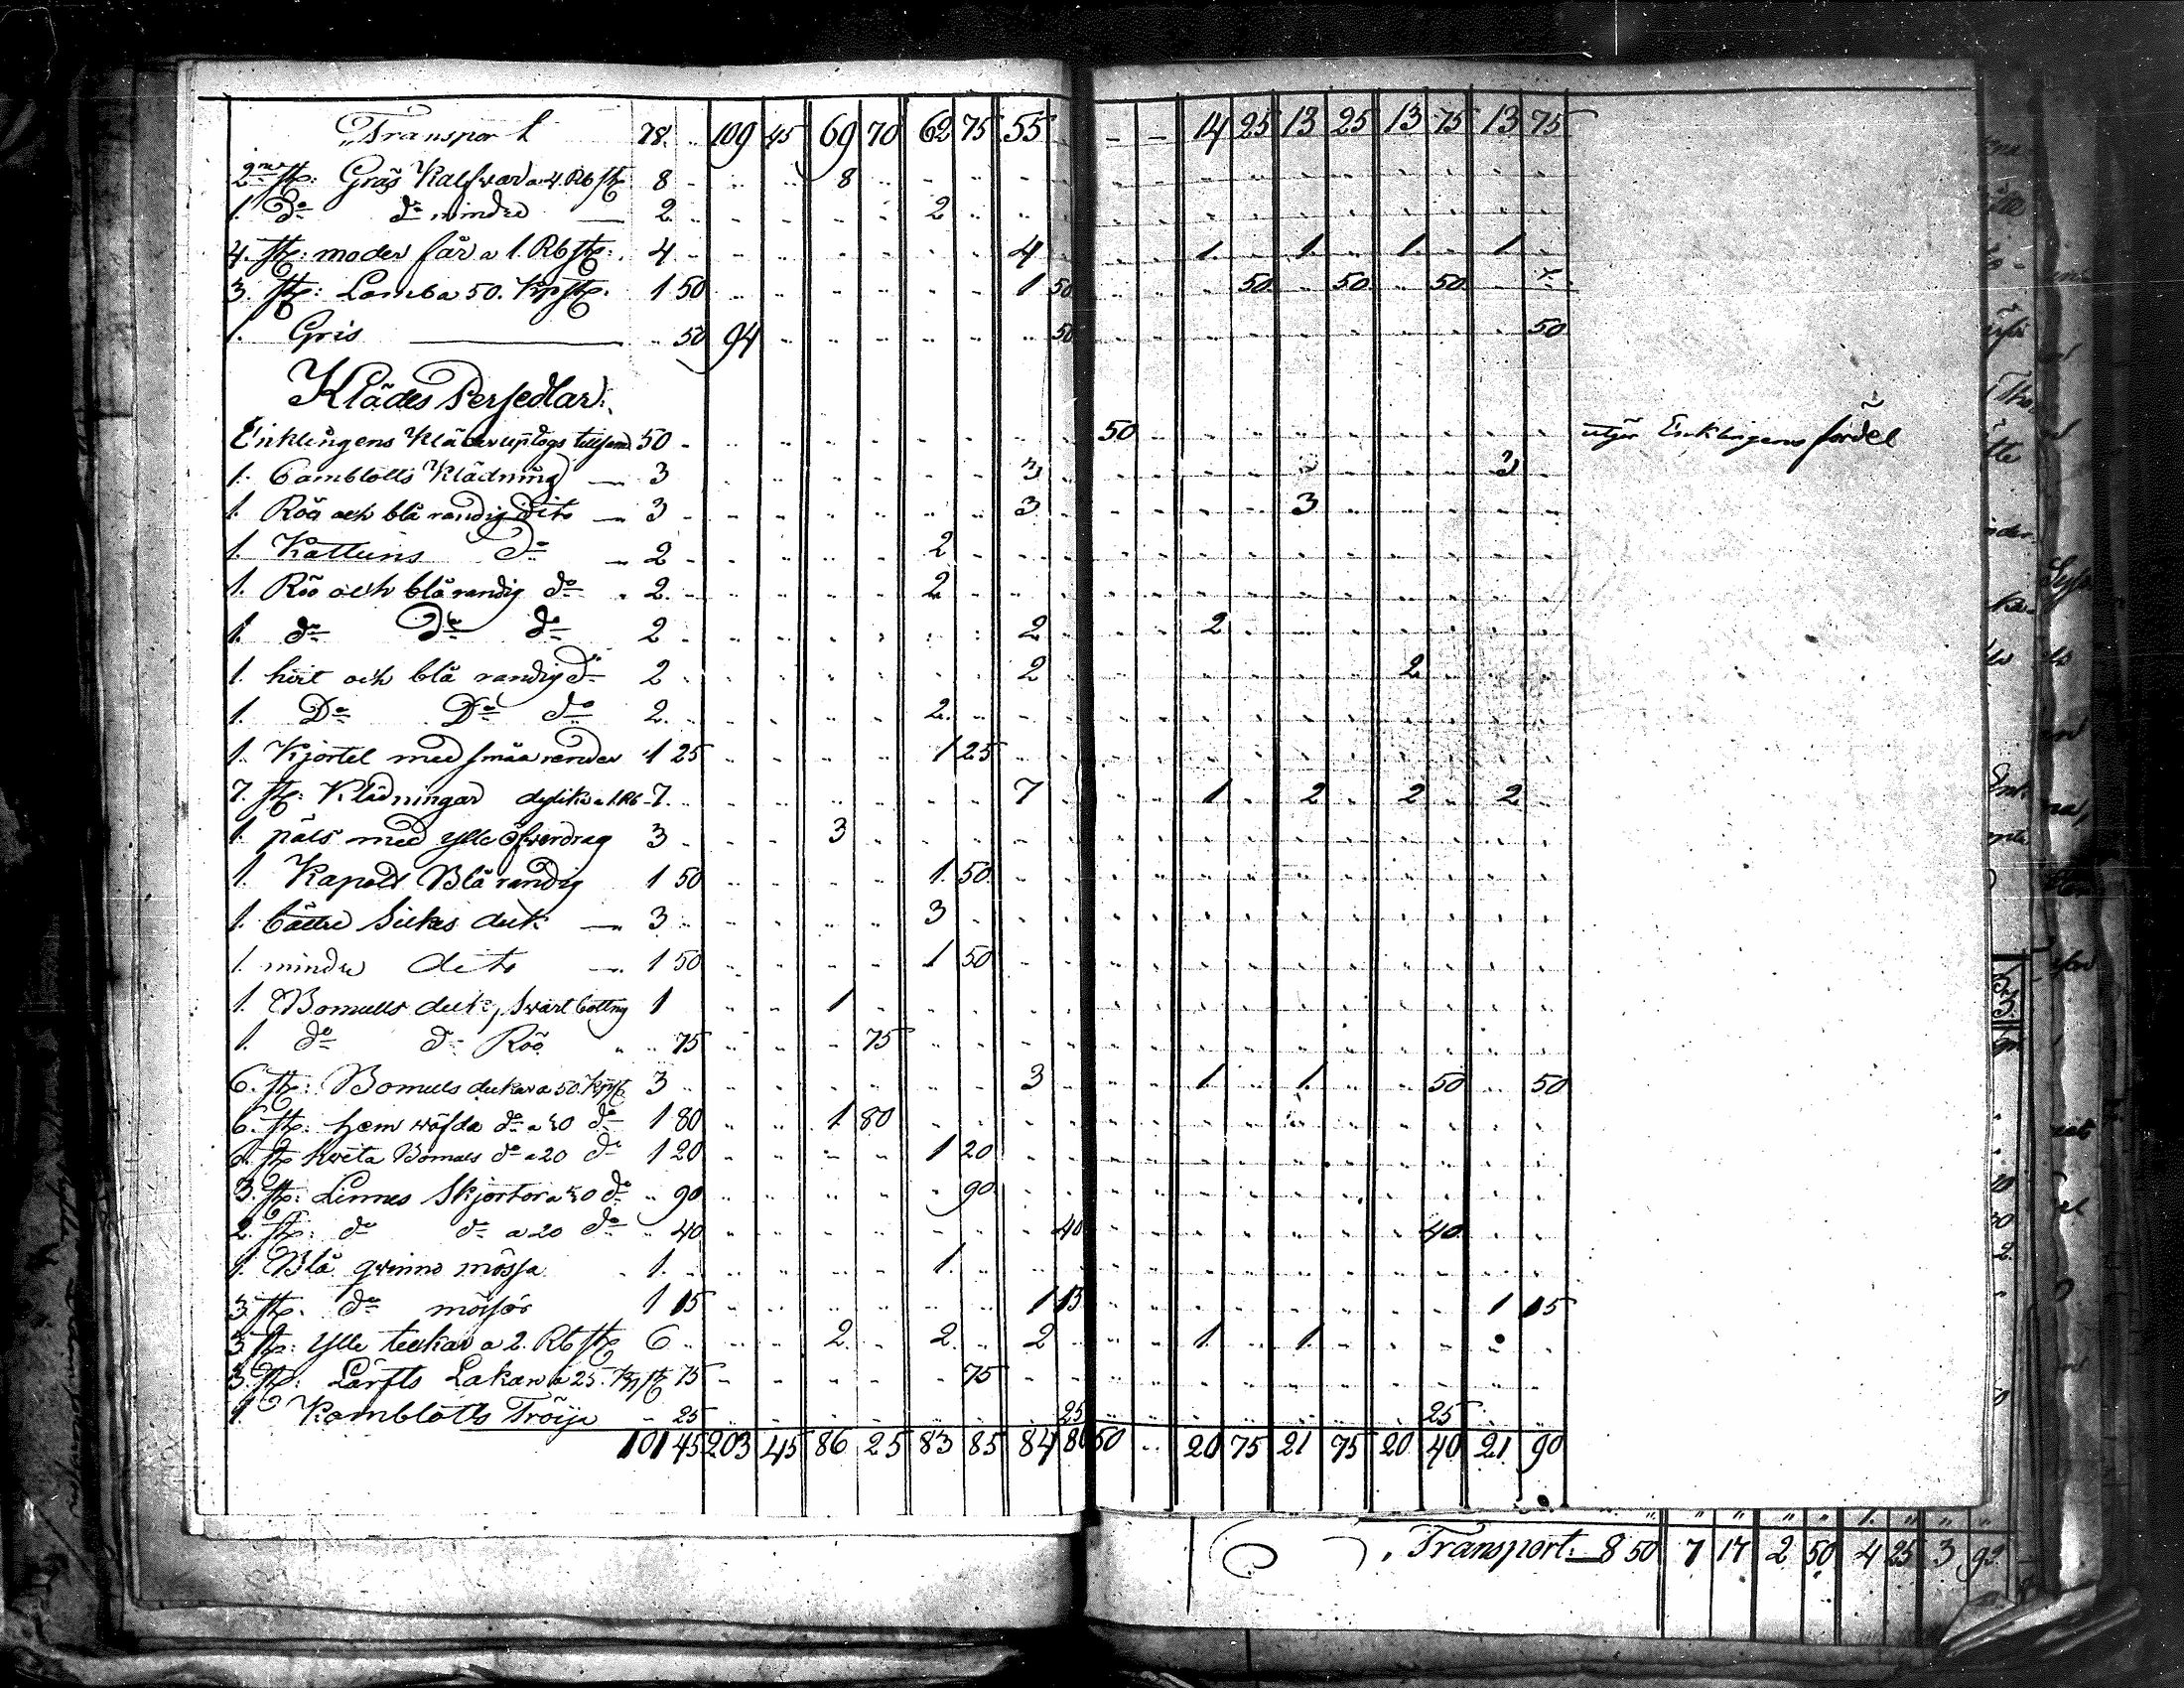 Transport 78. .. 109 45 69 70 62 75 55 .. - - 14 25 13 25 13 75 13 75
2ne st: Gräs Kalfwar a 4. Rb st 8 - 8
1. do do mindre — 2 2
4. st: moder får a 1. Rb st: 4 4 1. 1. 1. 1.
3. st: Lamb a 50. Kp st. 1 50 1 50 50 50 50
1. Gris — 50 94 50 50
Klädes Persedlar:
Enklingens Kläder uptogs tillsam 50 - 50 utgör Enklingens fördel
1. Camblotts Klädning — 3 3 3
1. Röd och blå randig dito — 3 3 3
1. Kattuns do — 2 2
1. Röd och blårandig do 2. 2
1. do Do do 2 2 2
1. hvit och blå randig do 2 2 2
1. Do Do do 2. 2.
1. Kjortel med småa render 1 25 1 25
7. st: Klädningar dylika a 1. Rb 7. 7 1 2 2 2
1. päls med ylle öfwerdrag 3 3
1. Kapold Blå randig 1 50 1. 50
1. bättre Silkes duk — 3 3
1. mindre dito — 1 50 1 50
1. Bomulls duk, swart bottng 1 1
1. do do Röd 75 75
6. st: Bomulls dukar a 50. Kp st 3 3 1 1. 50 50
6. st: hem wäfda do a 30 do 1 80 1. 80
6. st hvita Bomuls do a 20 do 1 20 1 20
3. st: Linnes Skjortor a 30 do 90 90
2. st: do do a 20 do 40 40 40
1. Blå qwinno mössa 1. 1.
3 st. do mössor 1 15 1 15 1 15
3 st: ylle teckar a 2. Rb st 6 2. 2. 2 1. 1.
3. st: Lärfts Lakan a 25. Kp st 75 75
1. Kamblotts Tröija 25 25 25
101 45 203 45 86 25 83 85 84 80 50 .. 20 75 21 75 20 40 21 90
Transport: 8 50 7 17 2 50 4 25 3 92